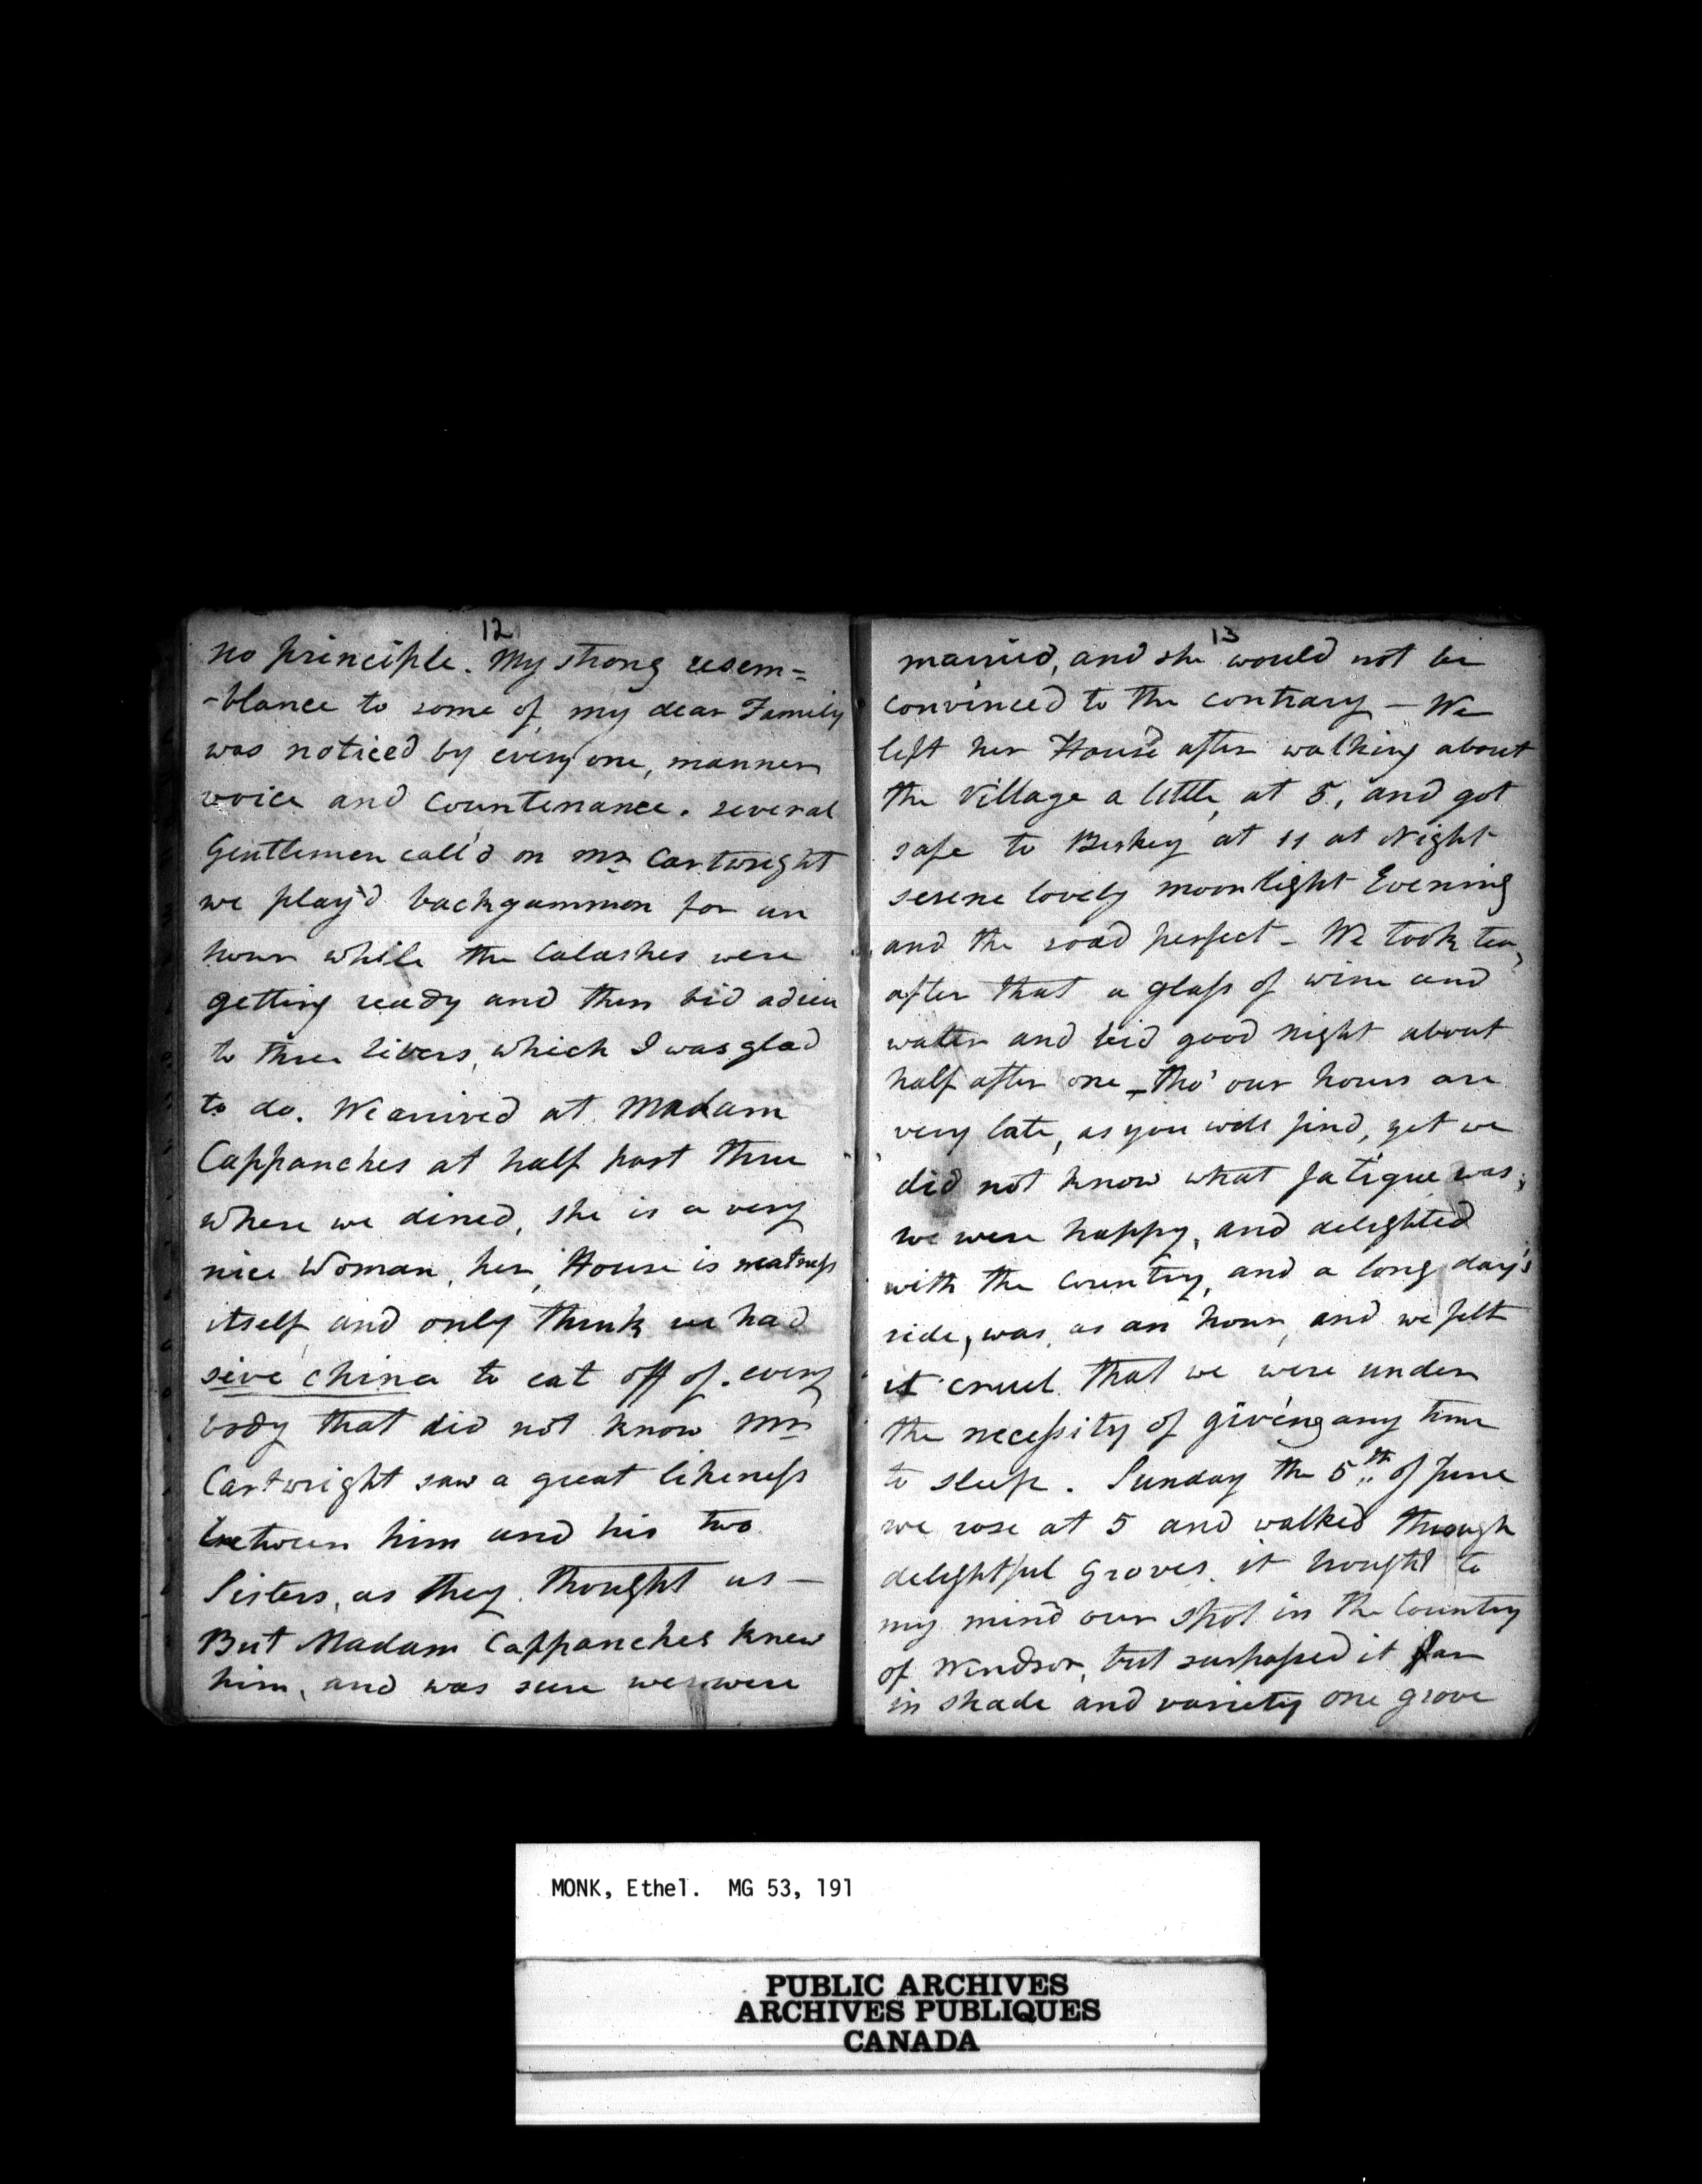 12
no principle. My strong resem=
-blance to some of my dear Family
was noticed by every one, manner
voice and Countenance. several
Gentlemen call'd on Mr Cartwright
we play'd backgammon for an
hour while the Calashes were
getting ready and then bid adieu
to three Rivers, which I was glad
to do. We arrived at Madam
Cappanches at half past three
where we dined, she is a very
nice Woman, her House is neatness
itself and only think we had
seve china to eat off of. every
body that did not know Mr
Cartwright saw a great likeness
between him and his two
Sisters, as they thought us —
But Madam Cappanches knew
him, and was sure we were
13
married, and she would not be
convinced to the contrary — We
left her House after walking about
the Village a little, at 5, and got
safe to Biskey at 11 at Night
serene lovely moonlight Evening
and the road perfect — We took tea,
after that a glass of wine and
water and bid good night about
half after one — tho' our hours are
very late, as you will find, yet we
did not know what fatigue was;
we were happy, and delighted
with the Country, and a long day's
ride, was, as an hour, and we felt
it cruel that we were under
the necessity of giving any time
to sleep. Sunday the 5th of June
we rose at 5 and walked through
delightful Groves. it brought to
my mind our spot in the Country
of Windsor, but surpassed it far
in shade and variety one grove
MONK, Ethel. MG 53, 191
PUBLIC ARCHIVES
ARCHIVES PUBLIQUES
CANADA